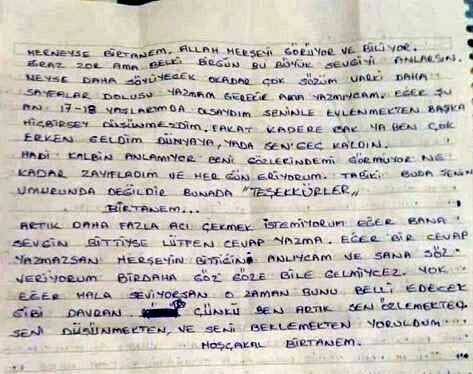 HERNEYSE BİRTANEM. ALLAH HERŞEYİ GÖRÜYOR VE BİLİYOR.
BİRAZ ZOR AMA BELKİ BİRGÜN BU BÜYÜK SEVGİYİ ANLARSIN.
NEYSE DAHA SÖYLİYECEK OKADAR ÇOK SÖZÜM VARKİ DAHA
SAYFALAR DOLUSU YAZMAM GEREKİR AMA YAZMIYCAM. EĞER ŞU
AN 17-18 YAŞLARINDA OLSAYDIM SENİNLE EVLENMEKTEN BAŞKA
HİÇBİRŞEY DÜŞÜNMEZDİM. FAKAT KADERE BAK YA BEN ÇOK
ERKEN GELDİM DÜNYAYA, YADA SEN GEÇ KALDIN.
HADİ KALBİN ANLAMIYOR BENİ GÖZLERİNDEMİ GÖRMÜYOR NE
KADAR ZAYIFLADIM VE HER GÜN ERİYORUM. TABİKİ BUDA SENİN
UMURUNDA DEĞİLDİR BUNADA "TEŞEKKÜRLER"
BİRTANEM...
ARTIK DAHA FAZLA ACI ÇEKMEK İSTEMİYORUM EĞER BANA
SEVGİN BİTTİYSE LÜTFEN CEVAP YAZMA. EĞER BİR CEVAP
YAZMAZSAN HERŞEYİN BİTTİĞİNİ ANLIYCAM VE SANA SÖZ
VERİYORUM BİRDAHA GÖZ GÖZE BİLE GELMİYCEZ. YOK
EĞER HALA SEVİYORSAN O ZAMAN BUNU BELLİ EDECEK
GİBİ DAVRAN ÇÜNKÜ BEN ARTIK SENİ ÖZLEMEKTEN
SENİ DÜŞÜNMEKTEN, VE SENİ BEKLEMEKTEN YORULDUM.
HOŞÇAKAL BİRTANEM.